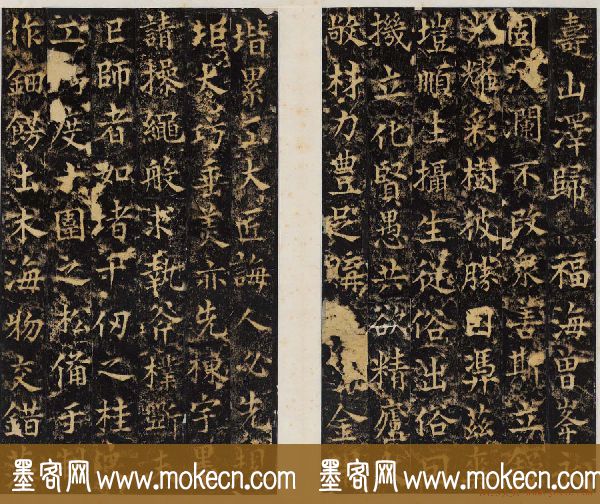 壽山澤歸福海曾峯
固瀾不改眾善斯立
光耀彩樹彼勝因馮茲
愷順主攝生從俗出俗
機立化賢愚共欲精廬
敬材力豊足金
堦累工大匠誨人必先規
大巧垂美亦先棟宇
請操繩般求執斧
師者如堵千仞之
立度十圍之松備手
作土木海物交錯
墨客网 www.mokecn.com 墨客网 www.mokecn.com